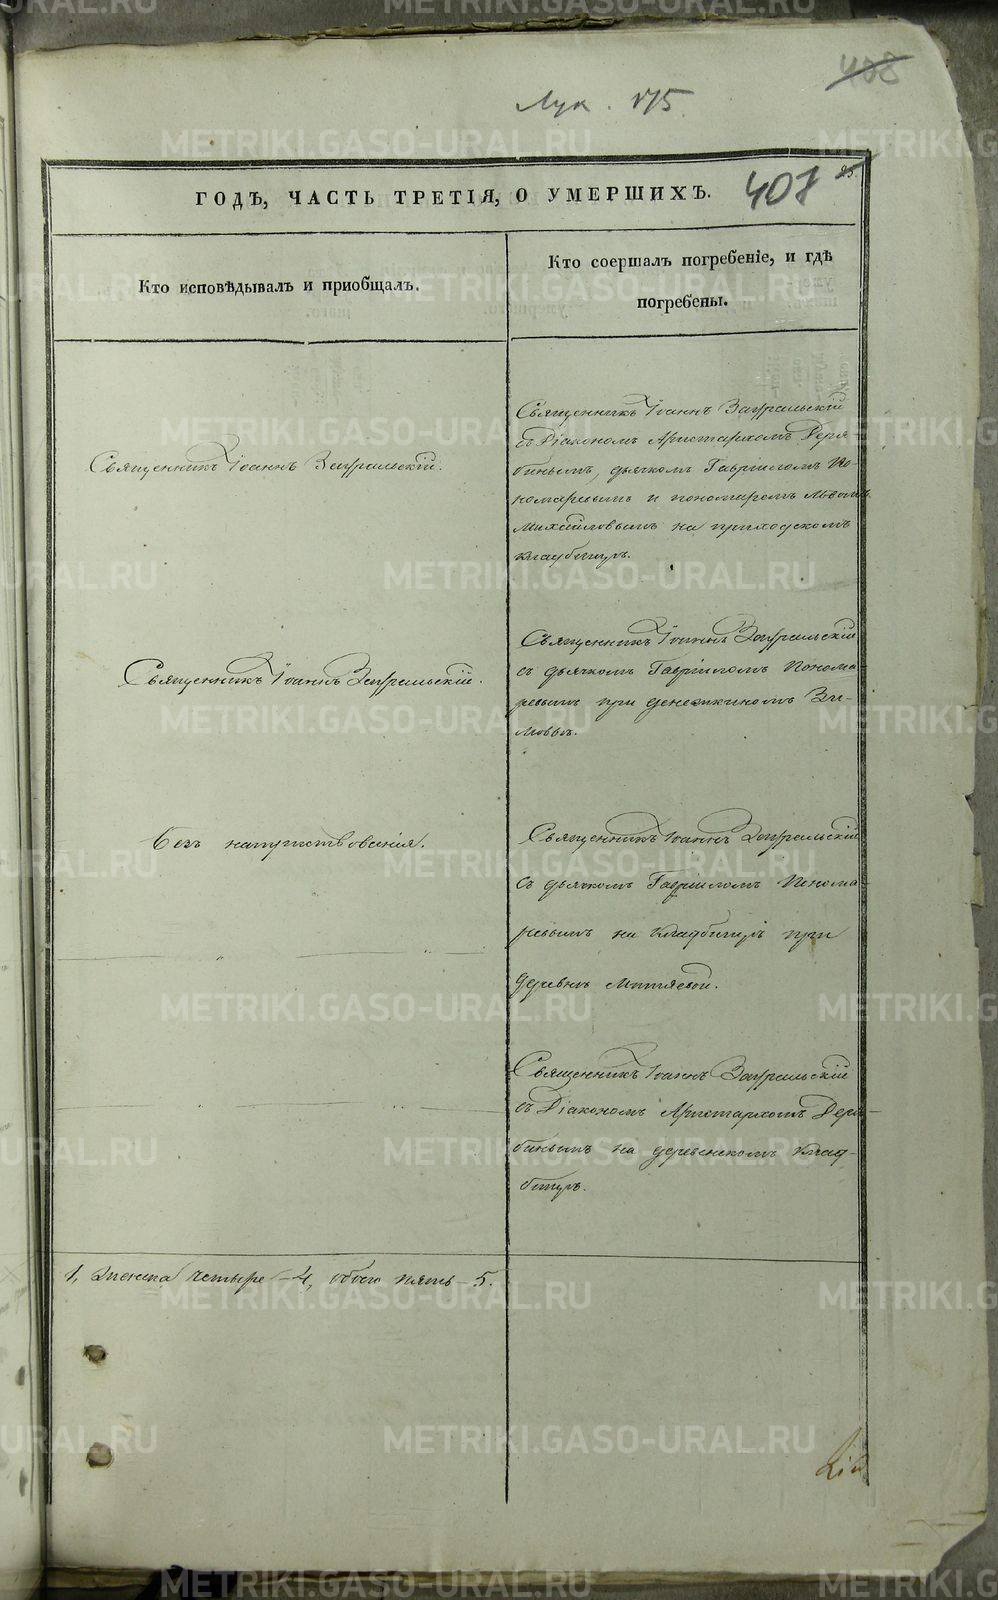 408
Лук. 175
25.
407
ГОДЪ, ЧАСТЬ ТРЕТІЯ, О УМЕРШИХЪ.
Кто исповѣдывалъ и приобщалъ.
Кто соершалъ погребеніе, и гдѣ
погребены.
Священникъ Іоаннъ Загуральскій.
Священникъ Іоаннъ Загуральскій
съ Діакономъ Аристархомъ Деря-
бинымъ, дьячкомъ Гавріиломъ По-
номаревымъ и пономаремъ Львомъ
Михайловымъ на приходскомъ
кладбищѣ.
Священникъ Іоаннъ Загуральскій.
Священникъ Іоаннъ Загуральскій
съ дьячкомъ Гавріиломъ Понома-
ревымъ при денежкиномъ Зи-
мовьѣ.
без напутствованія.
Священникъ Іоаннъ Загуральскій
съ дьячкомъ Гавріиломъ Понома-
ревымъ на кладбищѣ при
деревнѣ Митяевой.
Священникъ Іоаннъ Загуральскій
съ Діакономъ Аристархомъ Деря-
бинымъ на деревенскомъ клад-
бищѣ.
1, женска четыре – 4, обоего пять – 5.
METRIKI.GASO-URAL.RU